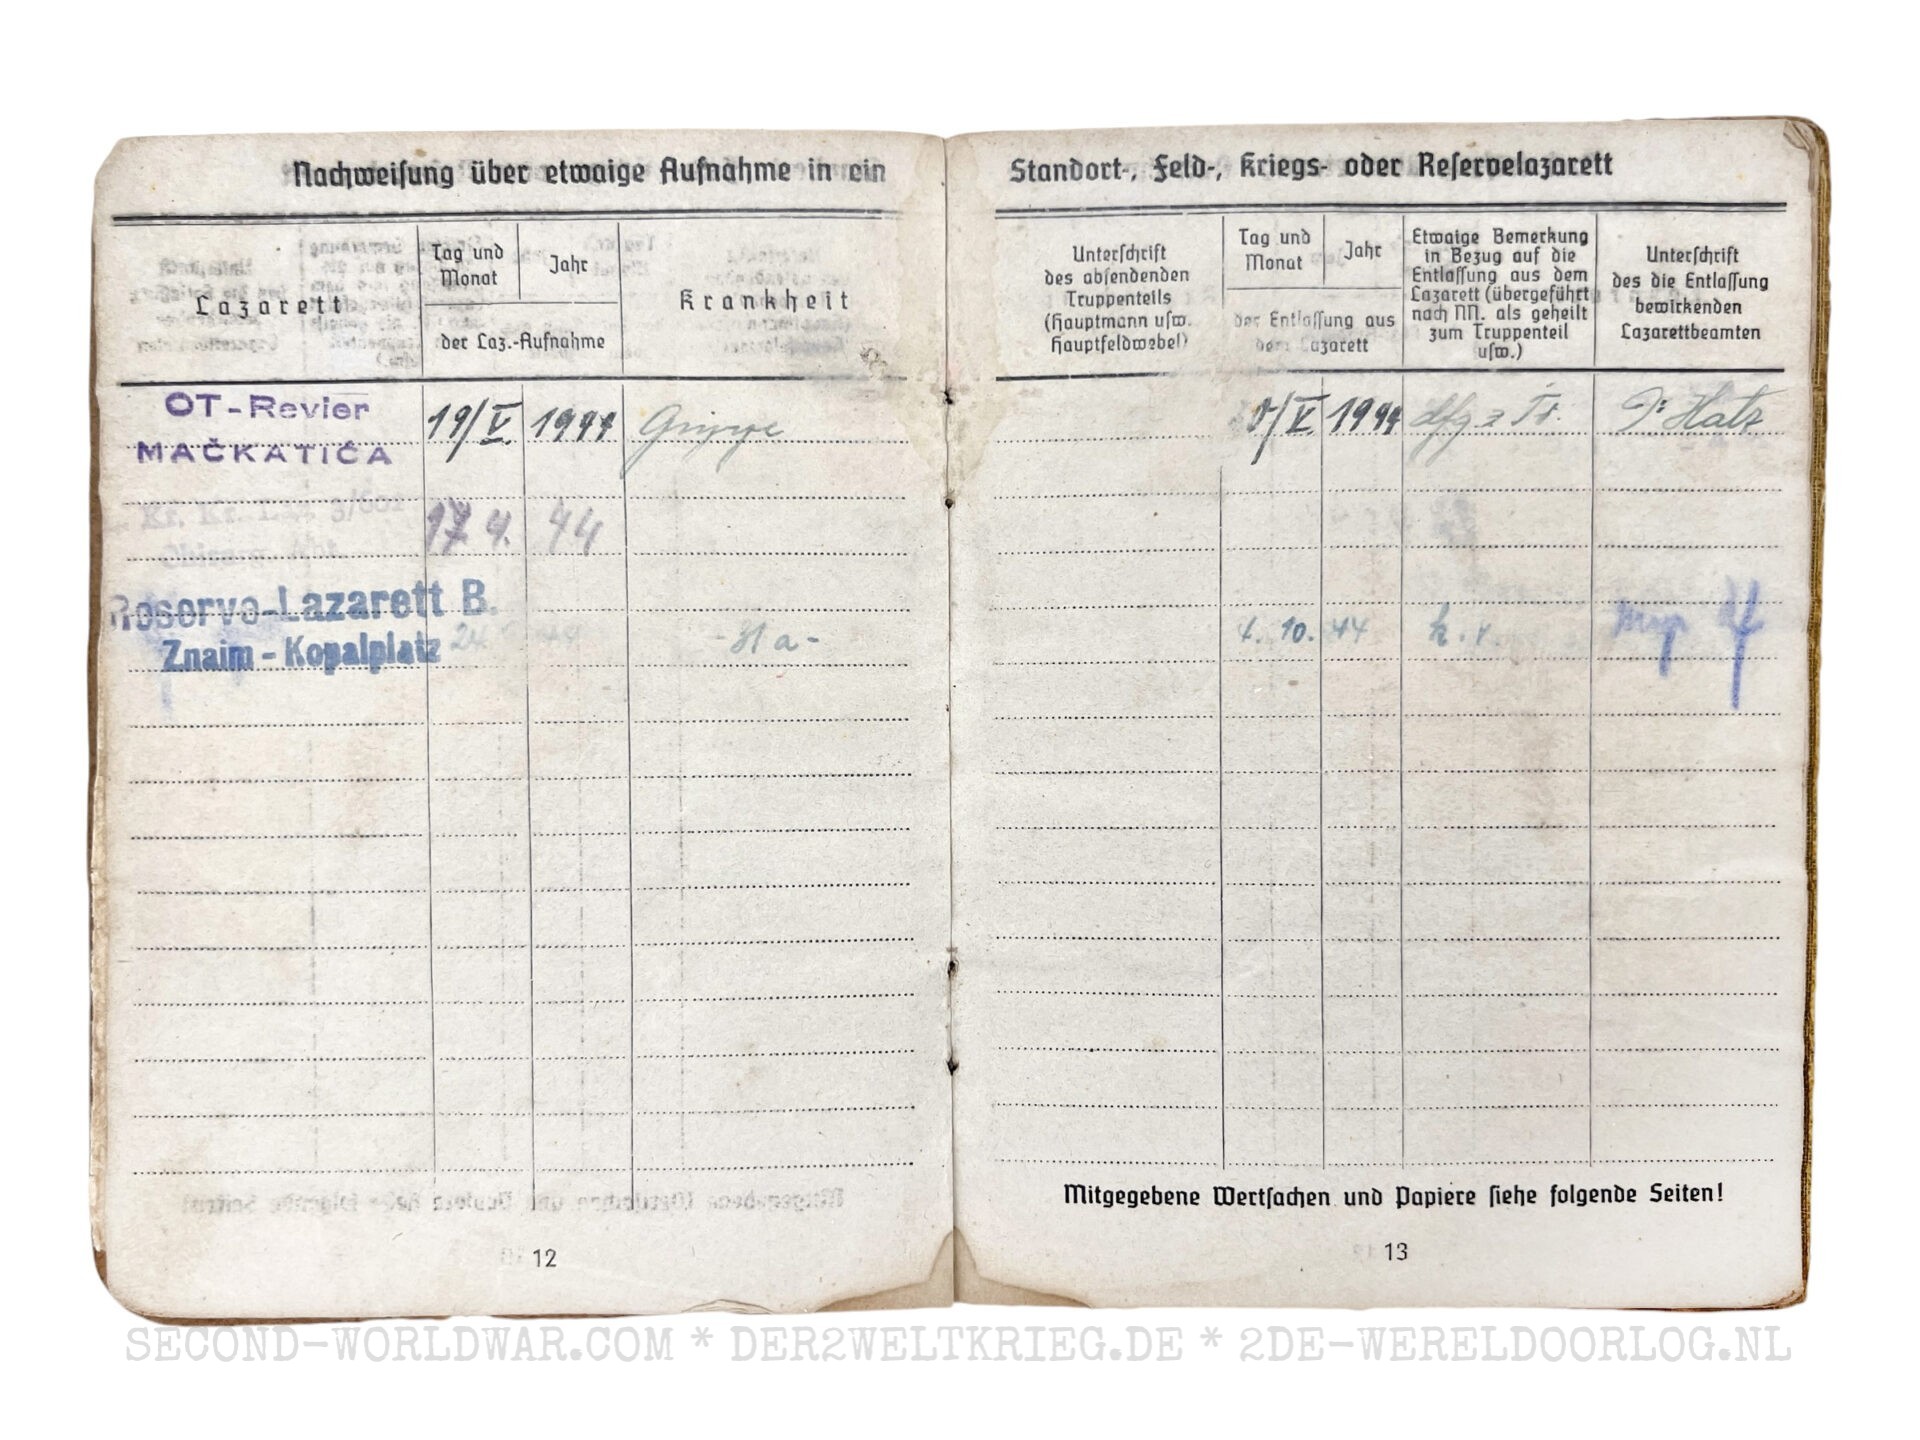 Nachweisung über etwaige Aufnahme in ein
Lazarett
Tag und
Monat
Jahr
der Laz.-Aufnahme
Krankheit
OT-Revier
MAČKATICA
19/V. 1944 Grippe
Kr. Kr. 3/601
17 4. 44
Reserve-Lazarett B.
Znaim - Kopalplatz
24 44 - 31 a -
12
Standort-, Feld-, Kriegs- oder Reservelazarett
Unterschrift
des absendenden
Truppenteils
(Hauptmann usw.
Hauptfeldwebel)
Tag und
Monat
Jahr
der Entlassung aus
dem Lazarett
Etwaige Bemerkung
in Bezug auf die
Entlassung aus dem
Lazarett (übergeführt
nach NN. als geheilt
zum Truppenteil
usw.)
Unterschrift
des die Entlassung
bewirkenden
Lazarettbeamten
/V 1944 dfg z Tr.
4. 10. 44
Mitgegebene Wertsachen und Papiere siehe folgende Seiten!
13
SECOND-WORLDWAR.COM * DER2WELTKRIEG.DE * 2DE-WERELDOORLOG.NL